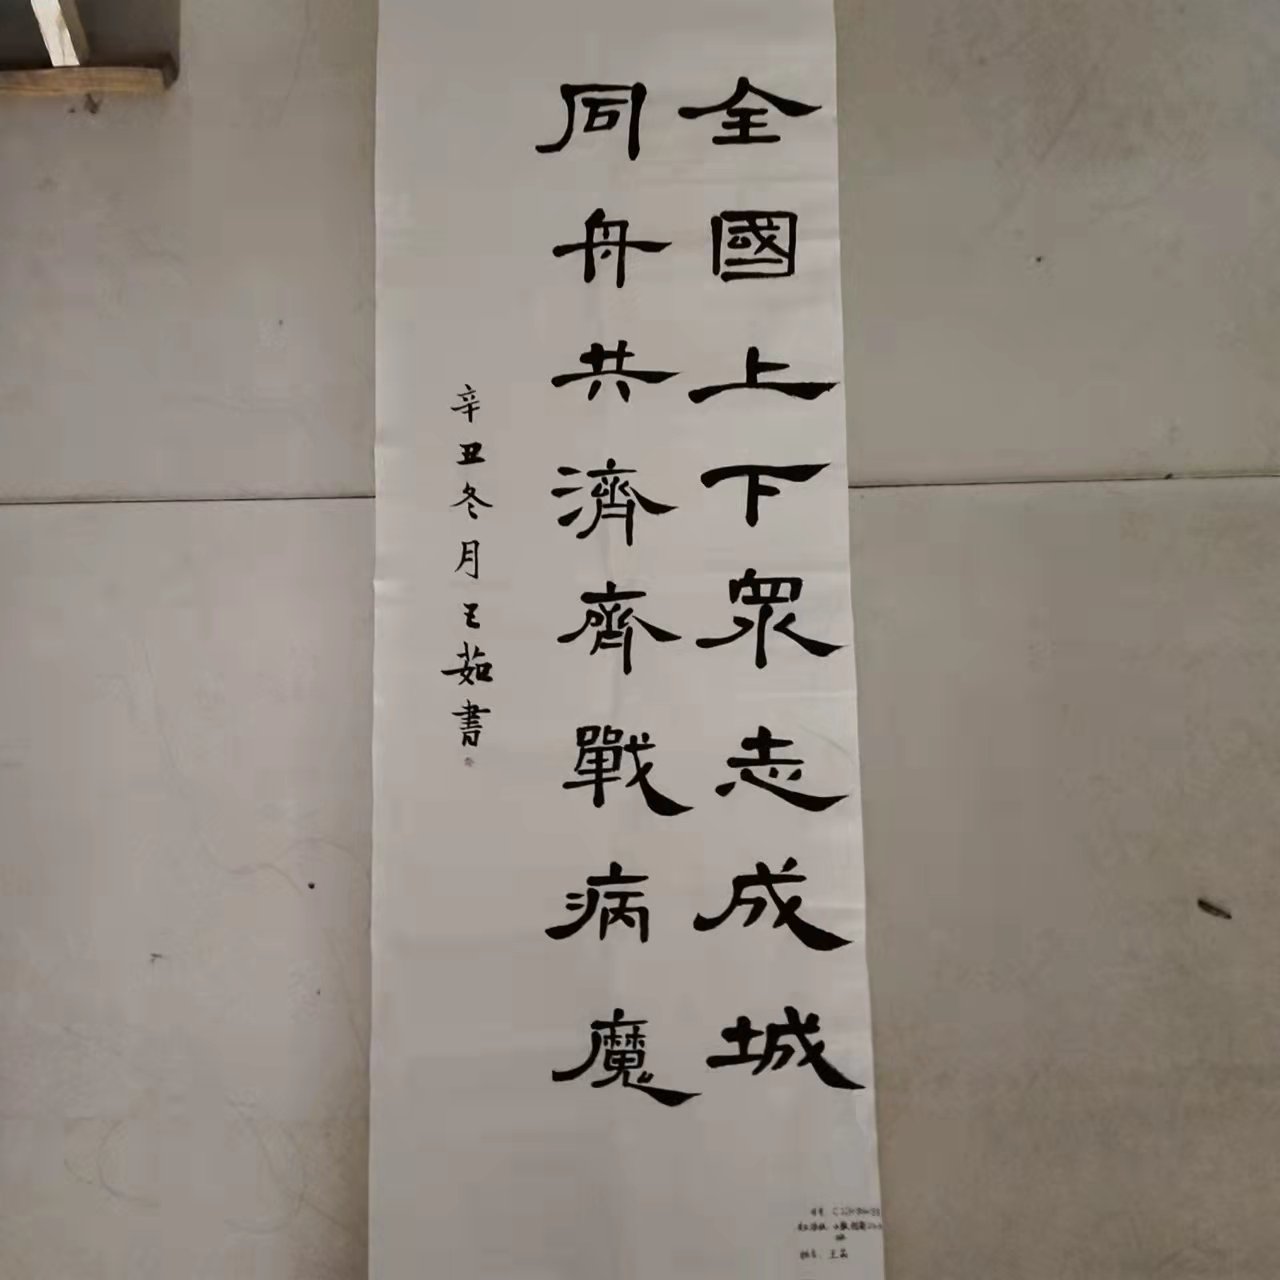 全國上下眾志成城
同舟共濟齊戰病魔
辛丑冬月王茹書